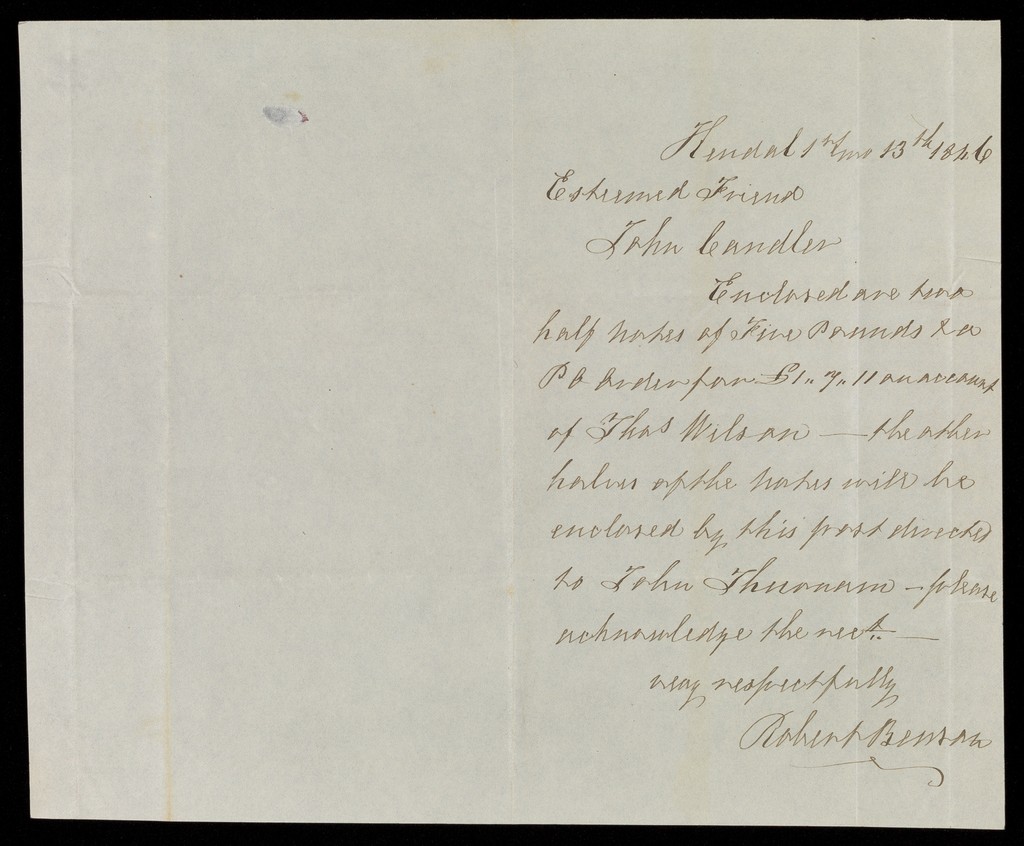 Kendal 1st mo 13th 1846
Esteemed Friend
John Candler
Enclosed are two
half notes of Five Pounds & a
P O Order for £1 " 7 " 11 on account
of Thos Wilson — the other
halves of the notes will be
enclosed by this post directed
to John Thurnam — please
acknowledge the rect. —
very respectfully
Robert Benson